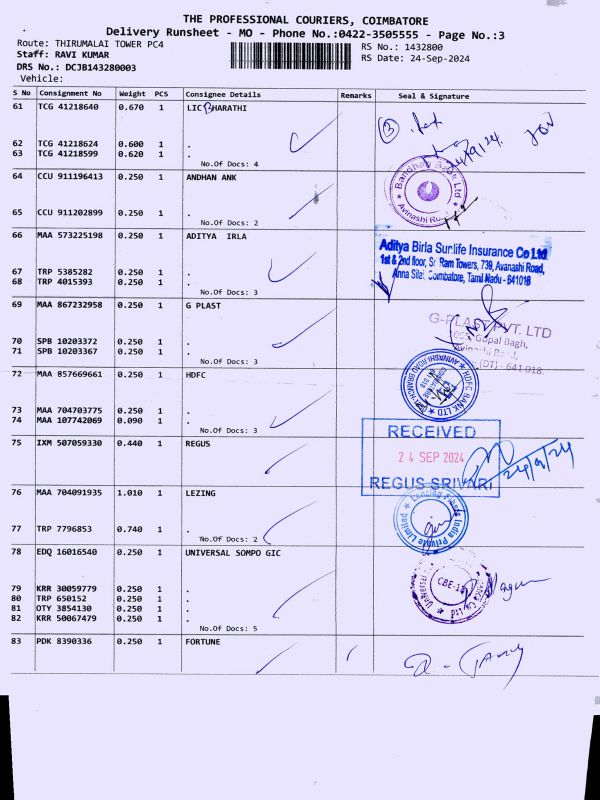 THE PROFESSIONAL COURIERS, COIMBATORE
Delivery Runsheet - MO - Phone No.:0422-3505555 - Page No.:3
Route: THIRUMALAI TOWER PC4
RS No.: 1432800
Staff: RAVI KUMAR
RS Date: 24-Sep-2024
DRS No.: DCJB143280003
Vehicle:
S No Consignment No Weight PCS Consignee Details Remarks Seal & Signature
61 TCG 41218640 0.670 1 LIC BHARATHI
62 TCG 41218624 0.600 1 .
63 TCG 41218599 0.620 1 .
No.Of Docs: 4
3
24/9/24
64 CCU 911196413 0.250 1 ANDHAN ANK
Bandhan Bank Ltd
Avinashi Road
65 CCU 911202899 0.250 1 .
No.Of Docs: 2
66 MAA 573225198 0.250 1 ADITYA IRLA
Aditya Birla Sunlife Insurance Co Ltd
1st & 2nd floor, Sri Ram Towers, 739, Avanashi Road,
Anna Silai, Coimbatore, Tamil Nadu - 641018
67 TRP 5385282 0.250 1 .
68 TRP 4015393 0.250 1 .
No.Of Docs: 3
69 MAA 867232958 0.250 1 G PLAST
G-PLAST PVT. LTD
Gopal Bagh,
Avinashi Road,
(DT) - 641 018.
70 SPB 10203372 0.250 1 .
71 SPB 10203367 0.250 1 .
No.Of Docs: 3
72 MAA 857669661 0.250 1 HDFC
HDFC BANK LTD
73 MAA 704703775 0.250 1 .
74 MAA 107742069 0.090 1 .
No.Of Docs: 3
75 IXM 507059330 0.440 1 REGUS
RECEIVED
24 SEP 2024
REGUS SRIVARI
24/9/24
76 MAA 704091935 1.010 1 LEZING
Lenzing Fibers India Private Limited
77 TRP 7796853 0.740 1 .
No.Of Docs: 2
78 EDQ 16016540 0.250 1 UNIVERSAL SOMPO GIC
Universal
CBE-18
79 KRR 30059779 0.250 1 .
80 TRP 650152 0.250 1 .
81 OTY 3854130 0.250 1 .
82 KRR 50067479 0.250 1 .
No.Of Docs: 5
83 PDK 8390336 0.250 1 FORTUNE